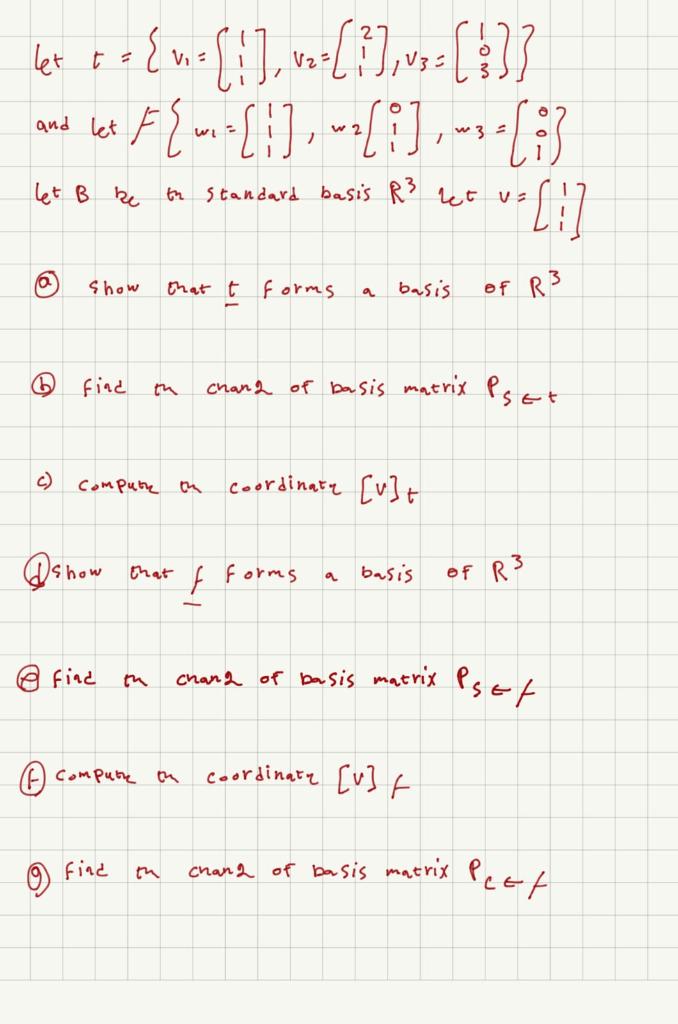 let t = { v1 = [1 1 1], v2 = [2 1 1], v3 = [1 0 3] }
and let F { w1 = [1 1 1], w2 [0 1 1], w3 = [0 0 1] }
let B be th standard basis R³ let v = [1 1 1]
ⓐ show that t forms a basis of R³
ⓑ find th chang of basis matrix P s ← t
c) compute th coordinate [v] t
ⓓ show that f forms a basis of R³
ⓔ find th chang of basis matrix P s ← f
ⓕ compute th coordinate [v] f
ⓖ find th chang of basis matrix P c ← f